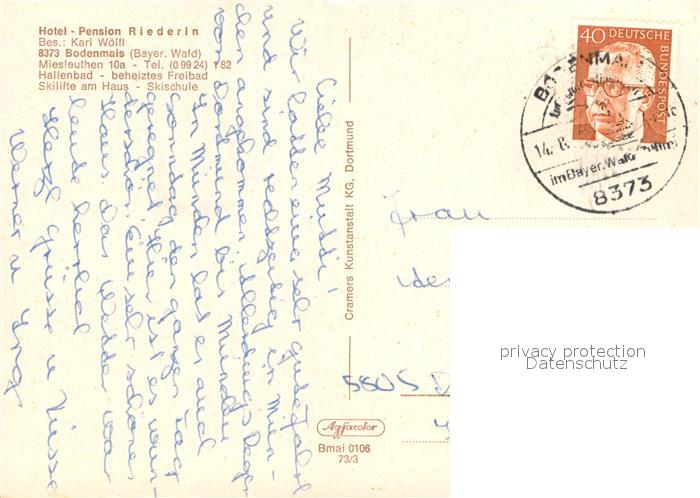 Hotel - Pension Riederin
Bes.: Karl Wölfl
8373 Bodenmais (Bayer. Wald)
Miesleuthen 10a - Tel. (0 99 24) 1 82
Hallenbad - beheiztes Freibad
Skilifte am Haus - Skischule
Liebe Mutti!
Wir hatten eine sehr gute Fahrt
und sind rechtzeitig in Mün-
chen angekommen. Allerdings Regen
von Dortmund bis München
In München hat es auch
Sonntag den ganzen Tag
geregnet. Hier ist es wun-
derschön. Ein sehr schönes
Haus. Das Wetter war
heute herrlich
Herzl. Grüsse u. Küsse
Werner u. Inge
Cramers Kunstanstalt KG, Dortmund
Agfacolor
Bmai 0106
73/3
40 DEUTSCHE
BUNDESPOST
14. 8.
im Bayer. Wald
8373
Frau
5805
privacy protection
Datenschutz